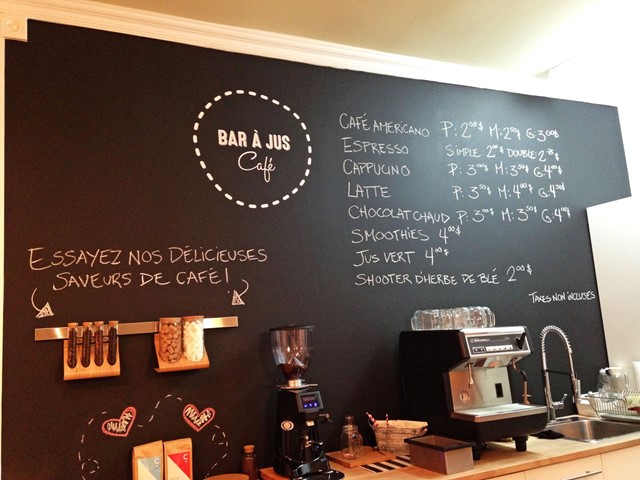 BAR À JUS
Café
CAFÉ AMERICANO P: 2⁰⁰$ M: 2⁵⁰$ G: 3⁰⁰$
ESPRESSO SIMPLE: 2⁰⁰$ DOUBLE: 2⁷⁵$
CAPPUCINO P: 3⁰⁰$ M: 3⁵⁰$ G: 4⁰⁰$
LATTE P: 3⁵⁰$ M: 4⁰⁰$ G: 4⁵⁰$
CHOCOLAT CHAUD P: 3⁰⁰$ M: 3⁵⁰$ G: 4⁰⁰$
SMOOTHIES 4⁰⁰$
JUS VERT 4⁰⁰$
SHOOTER D'HERBE DE BLÉ 2⁰⁰$
TAXES NON INCLUSES
ESSAYEZ NOS DÉLICIEUSES
SAVEURS DE CAFÉ!